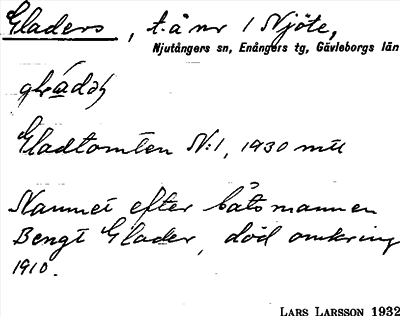 Gladers, t.å nr 1 Njöte,
Njutångers sn, Enångers tg, Gävleborgs län
Gladtomten N:1, 1930 mtl
Namnet efter båtsmannen
Bengt Glader, död omkring
1910.
LARS LARSSON 1932